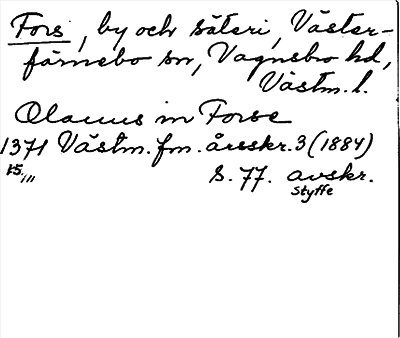 Fors, by och säteri, Väster-
färnebo sn, Vagnsbro hd,
Västm. l.
Olauus in Forse
1371 Västm. fm. årsskr. 3 (1884)
15/III S. 77. avskr.
Styffe